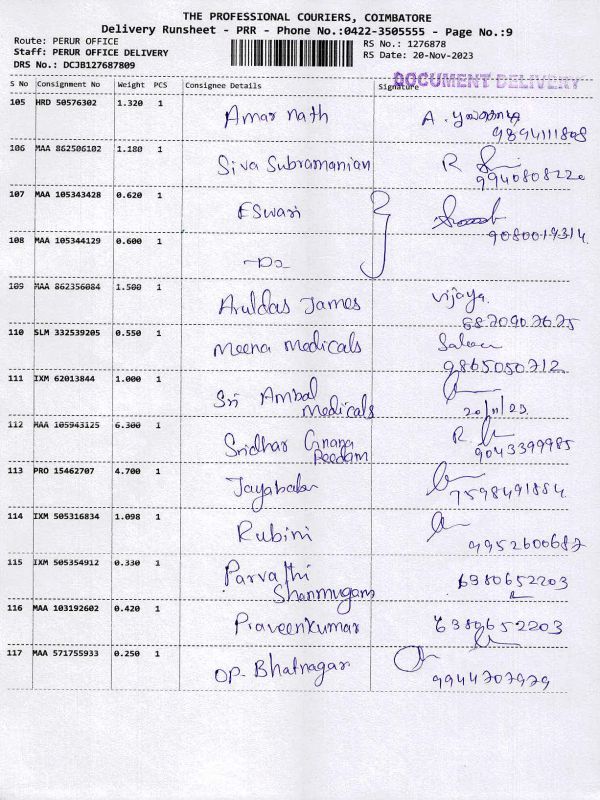 THE PROFESSIONAL COURIERS, COIMBATORE
Delivery Runsheet - PRR - Phone No.:0422-3505555 - Page No.:9
Route: PERUR OFFICE
RS No.: 1276878
Staff: PERUR OFFICE DELIVERY
RS Date: 20-Nov-2023
DRS No.: DCJB127687809
DOCUMENT DELIVERY
S No Consignment No Weight PCS Consignee Details Signature
105 HRD 50576302 1.320 1 Amar nath A.
9894111808
106 MAA 862506102 1.180 1 Siva Subramanian R
9940808220
107 MAA 105343428 0.620 1 Eswari
9080017314
108 MAA 105344129 0.600 1 -Do-
109 MAA 862356084 1.500 1 Aruldas James Vijaya
110 SLM 332539205 0.550 1 Meena Medicals
9865050712
111 IXM 62013844 1.000 1 Sri Ambal
Medicals 20/11/23
112 MAA 105943125 6.300 1 Sridhar Gnana
Peedam R.
9043399985
113 PRO 15462707 4.700 1 Jayabalan
7598491884
114 IXM 505316834 1.098 1 Rubini
9952600687
115 IXM 505354912 0.330 1 Parvathi
Shanmugam 6380652203
116 MAA 103192602 0.420 1 Praveenkumar 6380652203
117 MAA 571755933 0.250 1 OP. Bhatnagar
9944707979